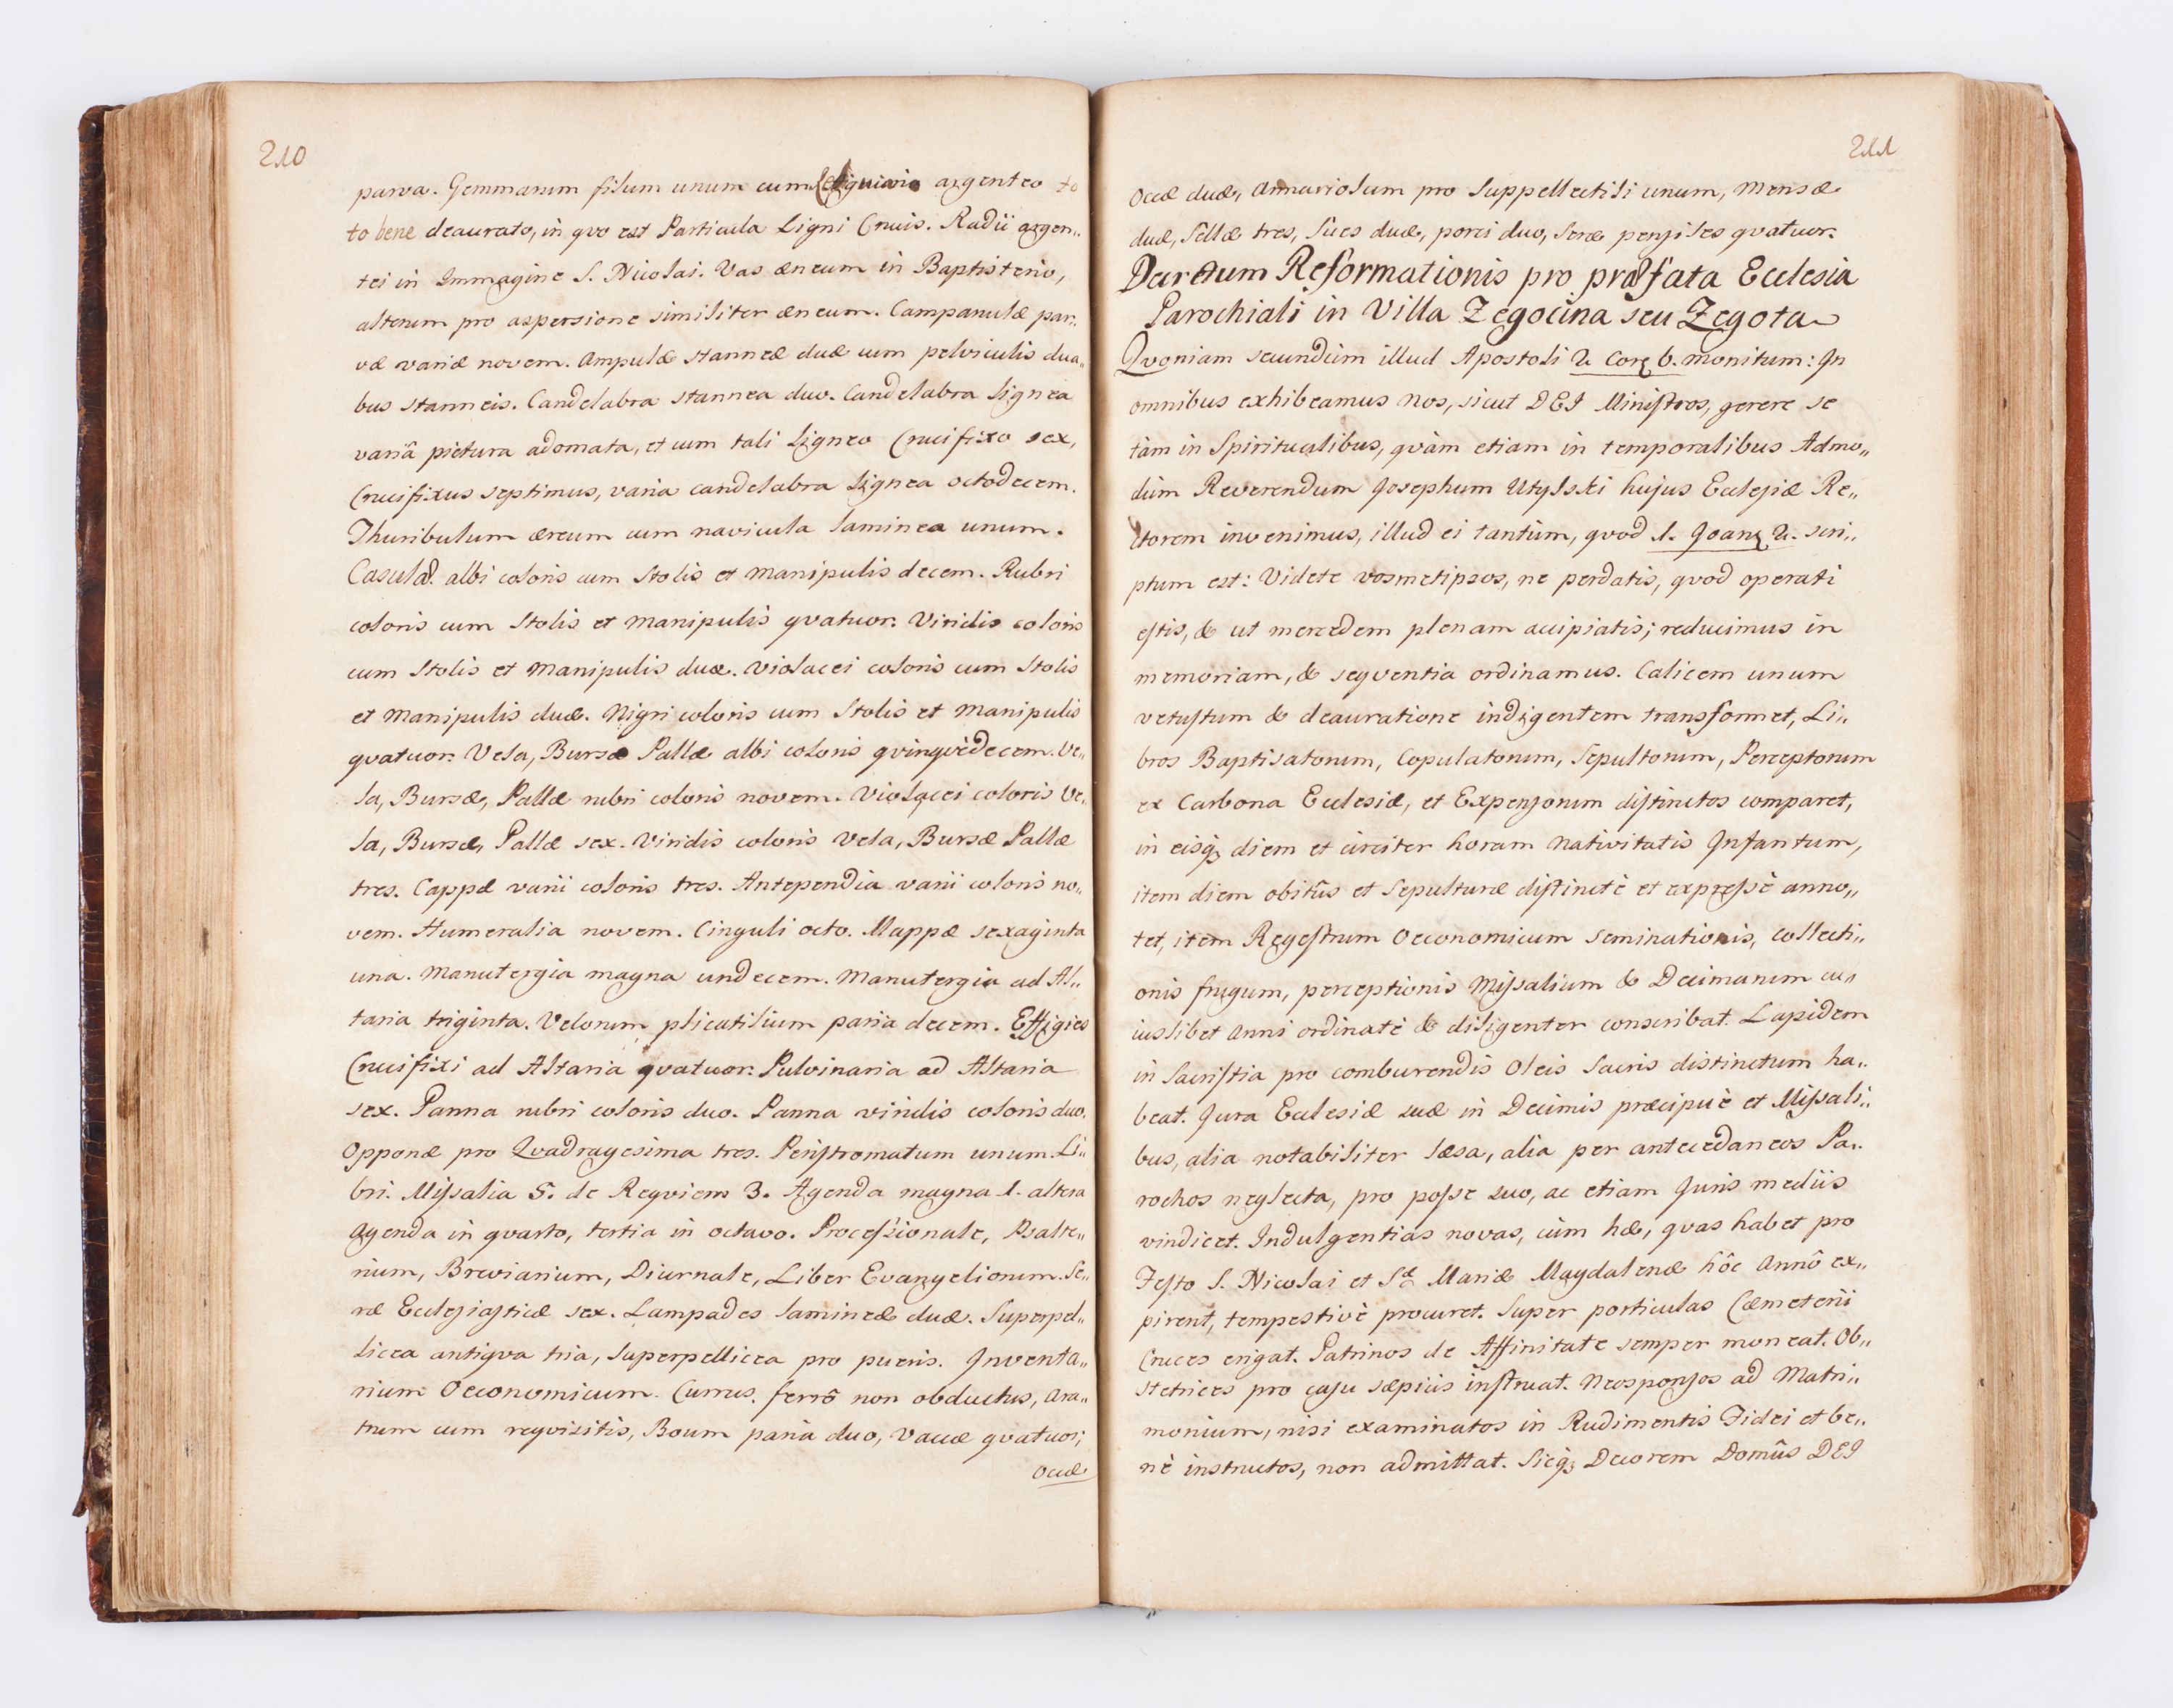 210
parva. Gemmarum filum unum cum Reliquiario argenteo to
to bene deaurato, in qvo est Particula Ligni Crucis. Radii argen„
tei in Immagine S. Nicolai. Vas æneum in Baptisterio,
alterum pro aspersione similiter æneum. Campanulæ par„
væ variæ novem. Ampulæ stanneæ duæ cum pelviculis dua„
bus stanneis. Candelabra stannea duo. Candelabra lignea
variâ pictura adornata, et cum tali Ligneo Crucifixo sex,
Crucifixus septimus, varia candelabra Lignea octodecem.
Thuribulum æreum cum navicula laminea unum.
Casulæ albi coloris cum Stolis et Manipulis decem. Rubri
coloris cum Stolis et Manipulis qvatuor. Viridis coloris
cum Stolis et Manipulis duæ. Violacei coloris cum Stolis
et Manipulis duæ. Nigri coloris cum Stolis et Manipulis
qvatuor. Vela, Bursæ Pallæ albi coloris qvinqvèdecem. Ve„
la, Bursæ, Pallæ rubri coloris novem. Violacei coloris Ve„
la, Bursæ, Pallæ sex. Viridis coloris Vela, Bursæ Pallæ
tres. Cappæ varii coloris tres. Antependia varii coloris no„
vem. Humeralia novem. Cinguli octo. Mappæ sexaginta
una. Manutergia magna undecem. Manutergia ad Al„
taria triginta. Velorum plicatilium paria decem. Effigies
Crucifixi ad Altaria qvatuor. Pulvinaria ad Altaria
sex. Panna rubri coloris duo. Panna viridis coloris duo.
Opponæ pro Qvadragesima tres. Peristromatum unum. Li„
bri. Missalia 5. de Reqviem 3. Agenda magna 1. altera
Agenda in qvarto, tertia in octavo. Processionale, Psalte„
rium, Breviarium, Diurnale, Liber Evangeliorum. Se„
ræ Ecclesiasticæ sex. Lampades lamineæ duæ. Superpel„
licea antiqva tria, Superpellicea pro pueris. Inventa„
rium Oeconomicum. Currus ferrô non obductus, Ara„
trum cum reqvisitis, Boum paria duo, Vaccæ qvatuor,
Occæ
211
Occæ duæ, Armariolum pro Suppellectili unum, Mensæ
duæ, Sellæ tres, Sues duæ, porci duo, Seræ pensiles qvatuor.
Decretum Reformationis pro præfata Ecclesia
Parochiali in Villa Zegocina seu Zegota
Qvoniam secundùm illud Apostoli 2. Cor. 6. monitum: In
omnibus exhibeamus nos, sicut DEI Ministros, gerere se
tàm in Spiritualibus, qvàm etiam in temporalibus Admo„
dùm Reverendum Josephum Utylski hujus Ecclesiæ Re„
ctorem invenimus, illud ei tantùm, qvod 1. Joan. 2. scri„
ptum est: Videte vosmetipsos, ne perdatis, qvod operati
estis, & ut mercedem plenam accipiatis; reducimus in
memoriam, & seqventia ordinamus. Calicem unum
vetustum & deauratione indigentem transformet, Li„
bros Baptisatorum, Copulatorum, Sepultorum, Perceptorum
ex Carbona Ecclesiæ, et Expensorum distinctos comparet,
in eisq3 diem et circiter horam Nativitatis Infantum,
item diem obitûs et Sepulturæ distinctè et expressè anno„
tet, item Regestrum Oeconomicum seminationis, collecti„
onis frugum, perceptionis Missalium & Decimarum cu„
iuslibet Anni ordinatè & diligenter conscribat. Lapidem
in Sacristia pro comburendis Oleis Sacris distinctum ha„
beat. Jura Ecclesiæ suæ in Decimis præcipuè et Missali„
bus, alia notabiliter læsa, alia per antecedaneos Pa„
rochos neglecta, pro posse suo, ac etiam Juris mediis
vindicet. Indulgentias novas, cùm hæ, qvas habet pro
Festo S. Nicolai et Sæ Mariæ Magdalenæ hôc Annô ex„
pirent, tempestivè procuret. Super porticulas Cæmeterii
Cruces erigat. Patrinos de Affinitate semper moneat. Ob„
stetrices pro casu sæpiùs instruat. Neosponsos ad Matri„
monium, nisi examinatos in Rudimentis Fidei et be„
nè instructos, non admittat. Sicq3 Decorem Domûs DEI